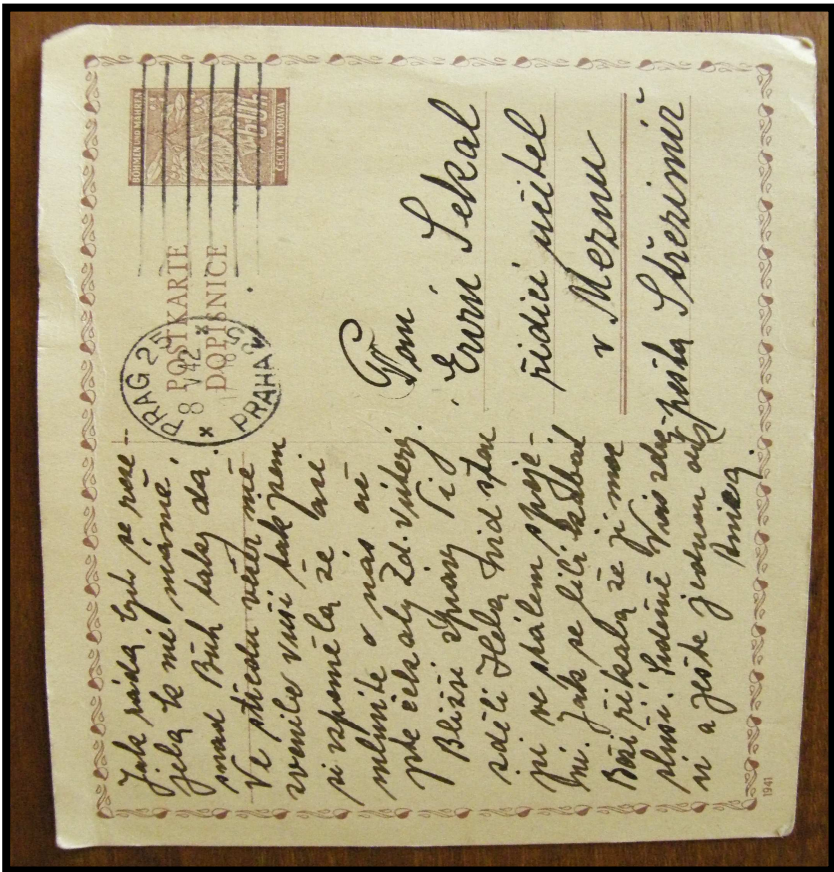 BÖHMEN UND MÄHREN
60h
ČECHY A MORAVA
POSTKARTE
DOPISNICE
PRAG 25
8 V 42
PRAHA
Pan
Ervín Sekal
řídící učitel
v Meznu
pošta Střezimíř
Jak ráda bych se roze-
jela k mé mámě,
snad Bůh taky dá.
Ve středu večer mě
zvonilo v uši tak jsem
si vzpoměla že asi
mluvíte o nás až
Zd. úterý.
Bližší zprávy Ti
sdělí Hela
ve stálém spoje-
ní. Jak se líbí kabát
říkala že jí moc
sluší. Srdečně Vás zdra-
ví a ještě jednou
1941